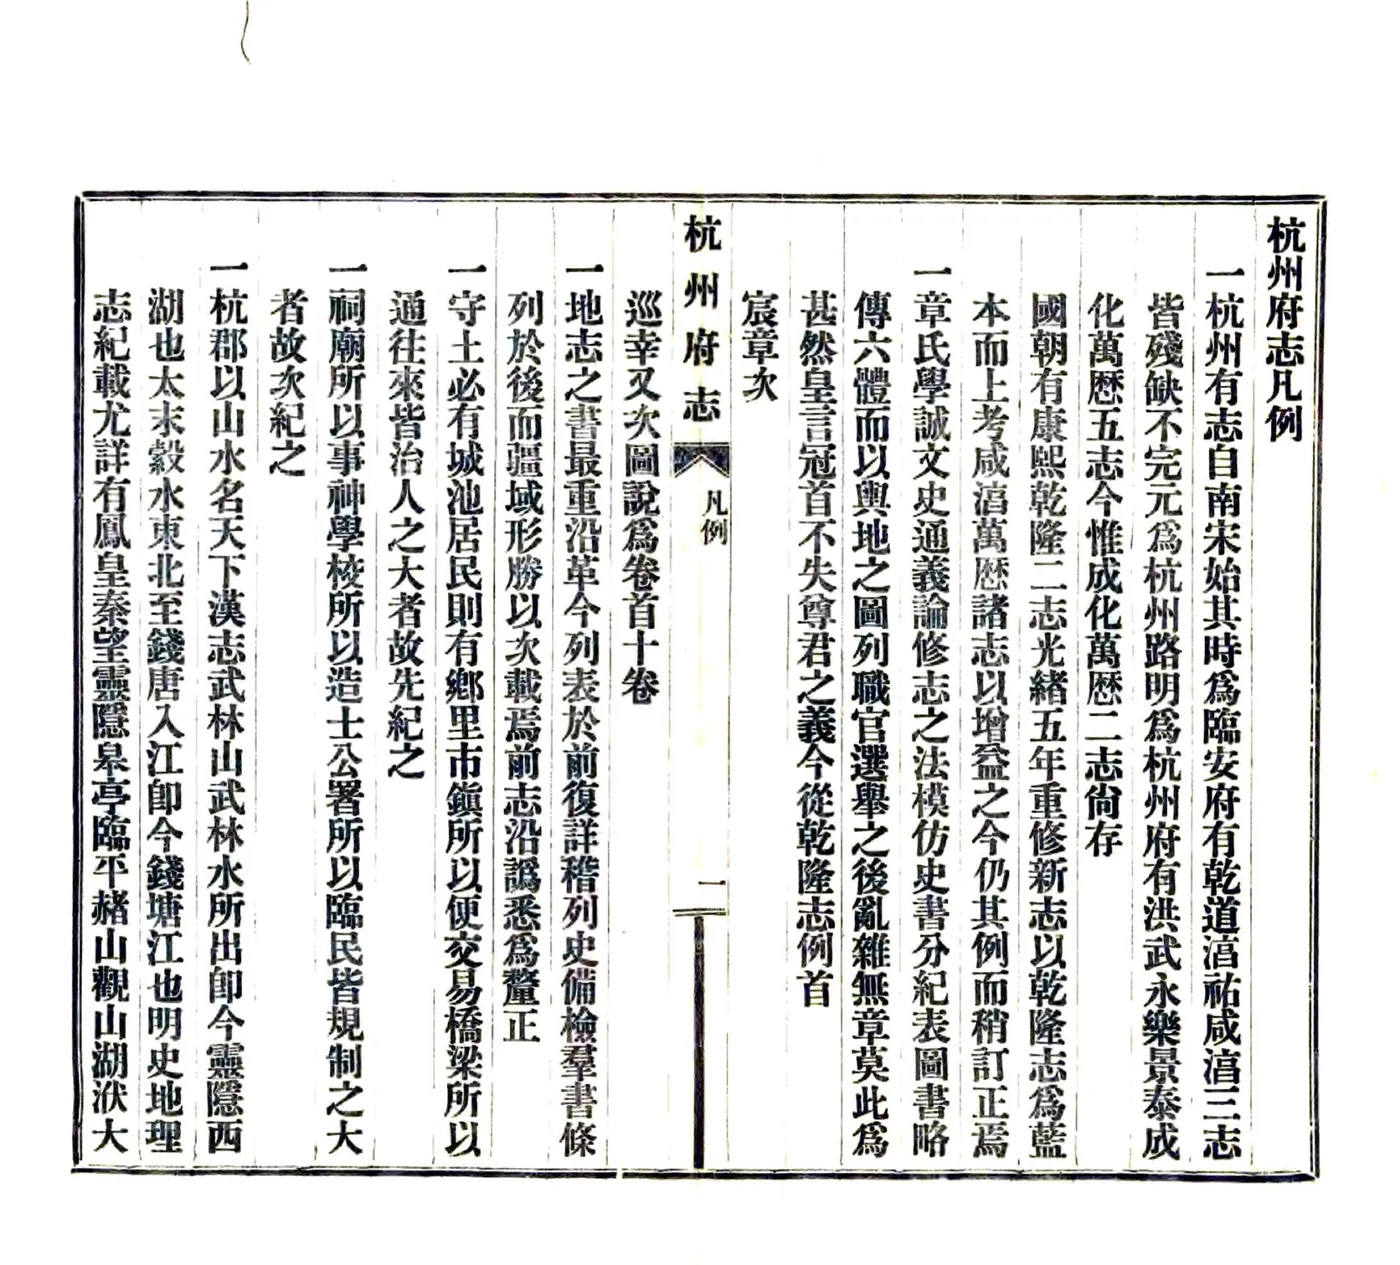 杭州府志凡例
一杭州有志自南宋始其時爲臨安府有乾道湻祐咸湻三志
皆殘缺不完元爲杭州路明爲杭州府有洪武永樂景泰成
化萬歴五志今惟成化萬歴二志尙存
國朝有康熙乾隆二志光緒五年重修新志以乾隆志爲藍
本而上考咸湻萬歴諸志以增益之今仍其例而稍訂正焉
一章氏學誠文史通義論修志之法模仿史書分紀表圖書略
傳六體而以輿地之圖列職官選舉之後亂雜無章莫此爲
甚然皇言冠首不失尊君之義今從乾隆志例首
宸章次
杭州府志
凡例
一
巡幸又次圖說爲卷首十卷
一地志之書最重沿革今列表於前復詳稽列史備檢羣書條
列於後而疆域形勝以次載焉前志沿譌悉爲釐正
一守土必有城池居民則有鄕里市鎭所以便交易橋梁所以
通往來皆治人之大者故先紀之
一祠廟所以事神學校所以造士公署所以臨民皆規制之大
者故次紀之
一杭郡以山水名天下漢志武林山武林水所出卽今靈隱西
湖也太末縠水東北至錢唐入江卽今錢塘江也明史地理
志紀載尤詳有鳳皇秦望靈隱皋亭臨平赭山觀山湖洑大